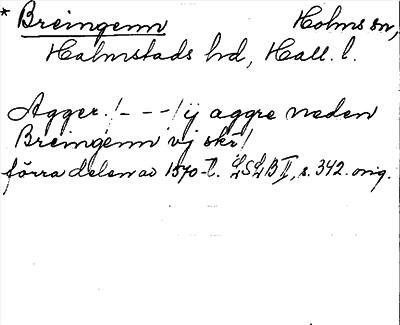 * Breingenn Holms sn,
Halmstads hd, Hall. l.
Agger /- - -/ ij aggre neden
Breingenn vj skr/
förra delen av 1540-t. LSLB II, s. 342. orig.